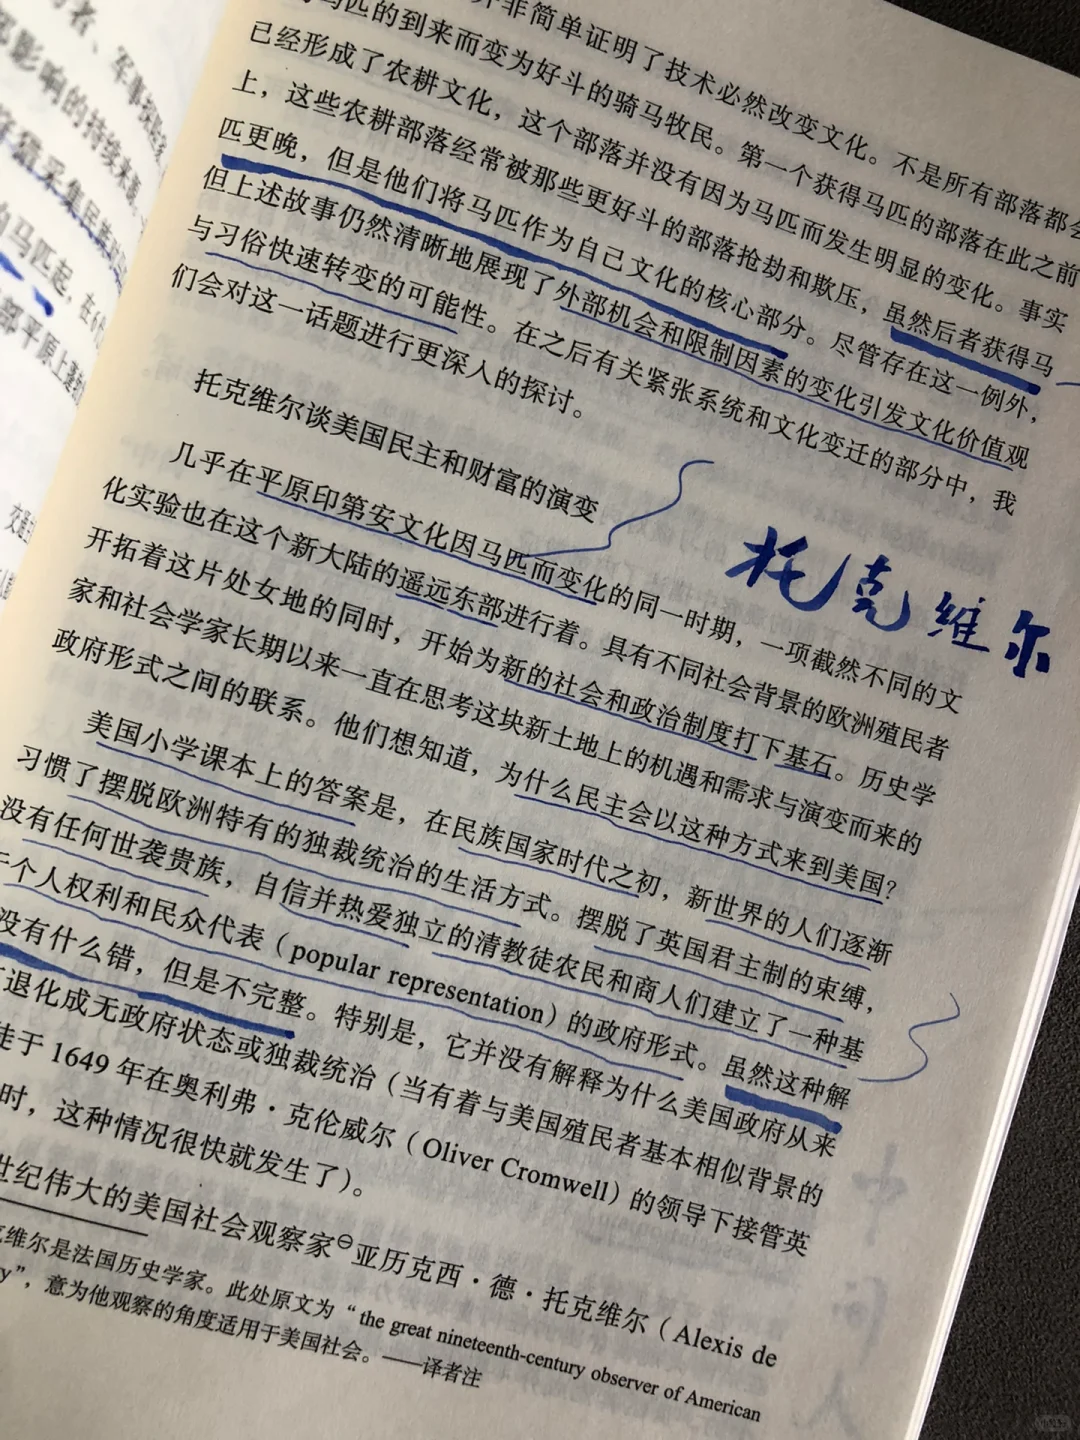 者、军事
影响的持续
采集民族
马匹起,在
部平原上
并非简单证明了技术必然改变文化。不是所有部落都会
马匹的到来而变为好斗的骑马牧民。第一个获得马匹的部落在此之前
已经形成了农耕文化,这个部落并没有因为马匹而发生明显的变化。事实
上,这些农耕部落经常被那些更好斗的部落抢劫和欺压,虽然后者获得马
匹更晚,但是他们将马匹作为自己文化的核心部分。尽管存在这一例外,
但上述故事仍然清晰地展现了外部机会和限制因素的变化引发文化价值观
与习俗快速转变的可能性。在之后有关紧张系统和文化变迁的部分中,我
们会对这一话题进行更深入的探讨。
托克维尔谈美国民主和财富的演变
托克维尔
几乎在平原印第安文化因马匹而变化的同一时期,一项截然不同的文
化实验也在这个新大陆的遥远东部进行着。具有不同社会背景的欧洲殖民者
开拓着这片处女地的同时,开始为新的社会和政治制度打下基石。历史学
家和社会学家长期以来一直在思考这块新土地上的机遇和需求与演变而来的
政府形式之间的联系。他们想知道,为什么民主会以这种方式来到美国?
美国小学课本上的答案是,在民族国家时代之初,新世界的人们逐渐
习惯了摆脱欧洲特有的独裁统治的生活方式。摆脱了英国君主制的束缚,
没有任何世袭贵族,自信并热爱独立的清教徒农民和商人们建立了一种基
于个人权利和民众代表(popular representation)的政府形式。虽然这种解
没有什么错,但是不完整。特别是,它并没有解释为什么美国政府从来
退化成无政府状态或独裁统治(当有着与美国殖民者基本相似背景的
徒于 1649 年在奥利弗·克伦威尔(Oliver Cromwell)的领导下接管英
时,这种情况很快就发生了)。
世纪伟大的美国社会观察家㊀亚历克西·德·托克维尔(Alexis de
克维尔是法国历史学家。此处原文为“the great nineteenth-century observer of American
ry”,意为他观察的角度适用于美国社会。——译者注